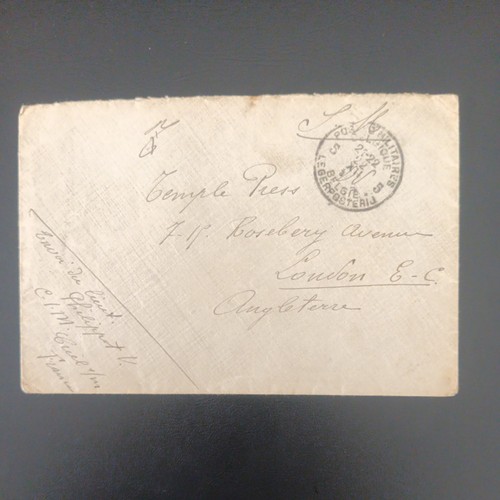 S. M.
POSTES MILITAIRES
BELGIQUE
BELGIE
LEGERPOSTERIJ
Temple Press
7-15 Rosebery Avenue
London E-C.
Angleterre
Envoi du Lieut.
Philippot V.
C.I.M.